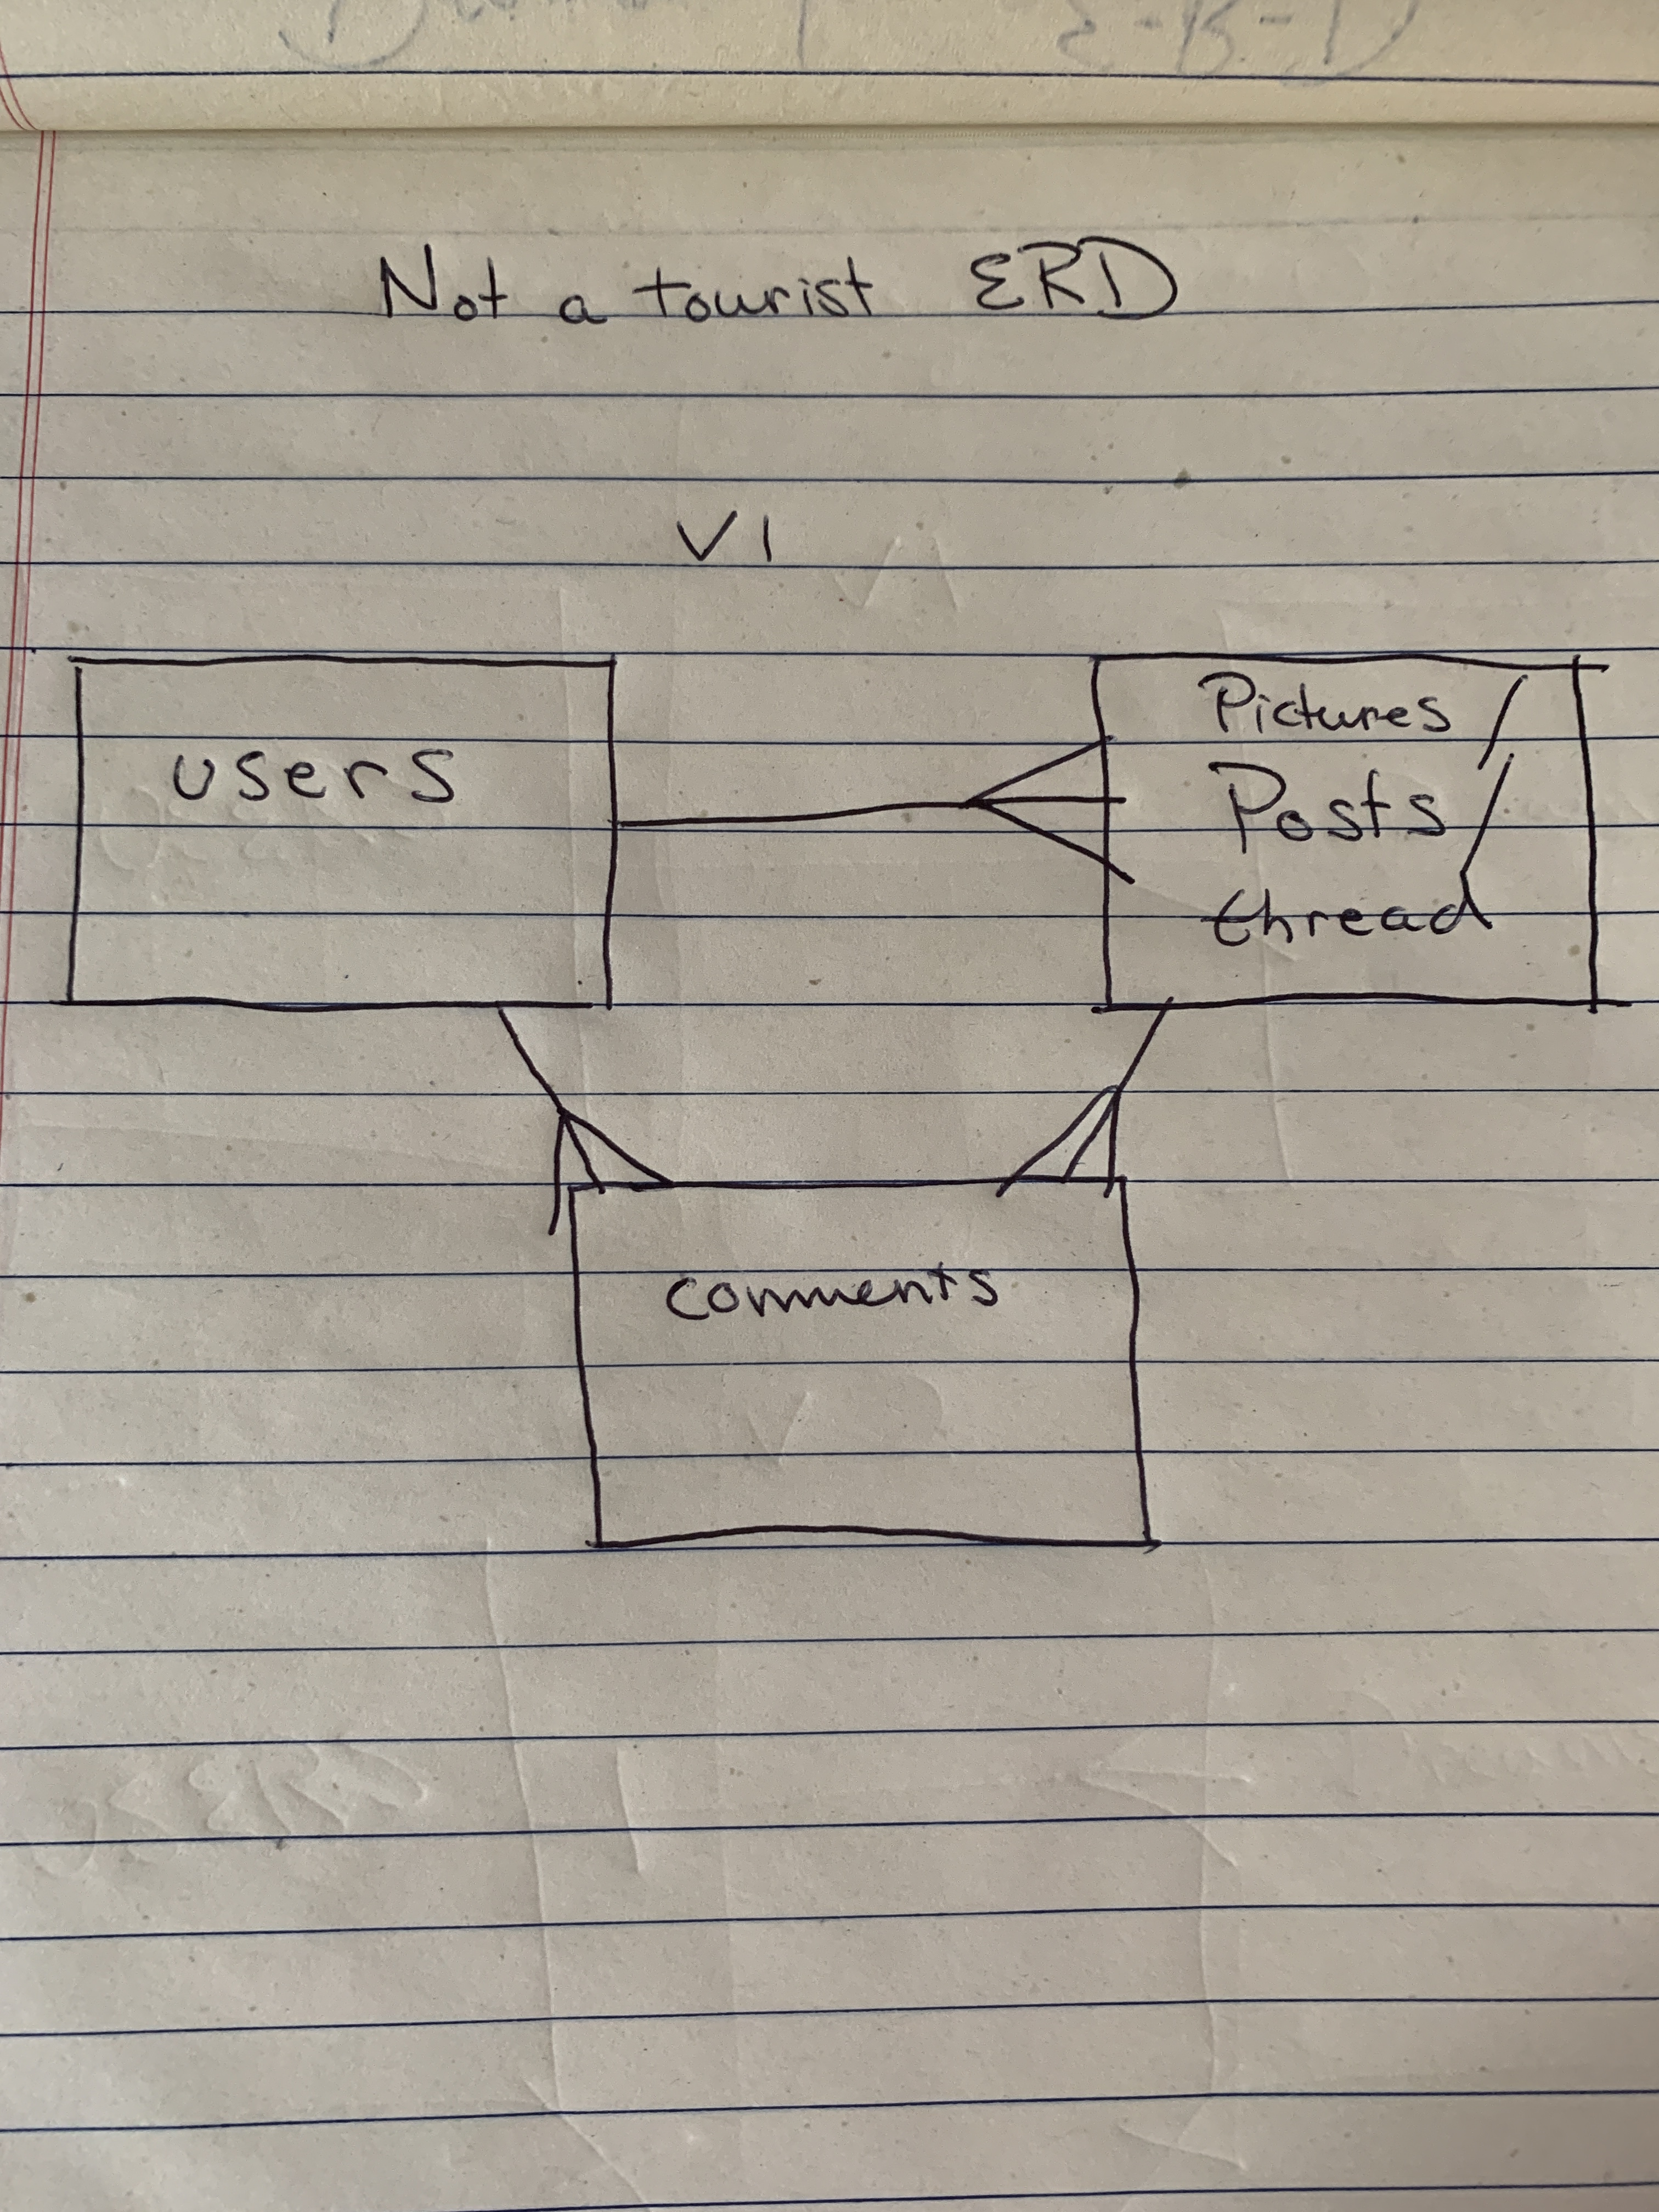 E-R-D
Not a tourist ERD
V1
users
Pictures /
Posts /
thread
comments